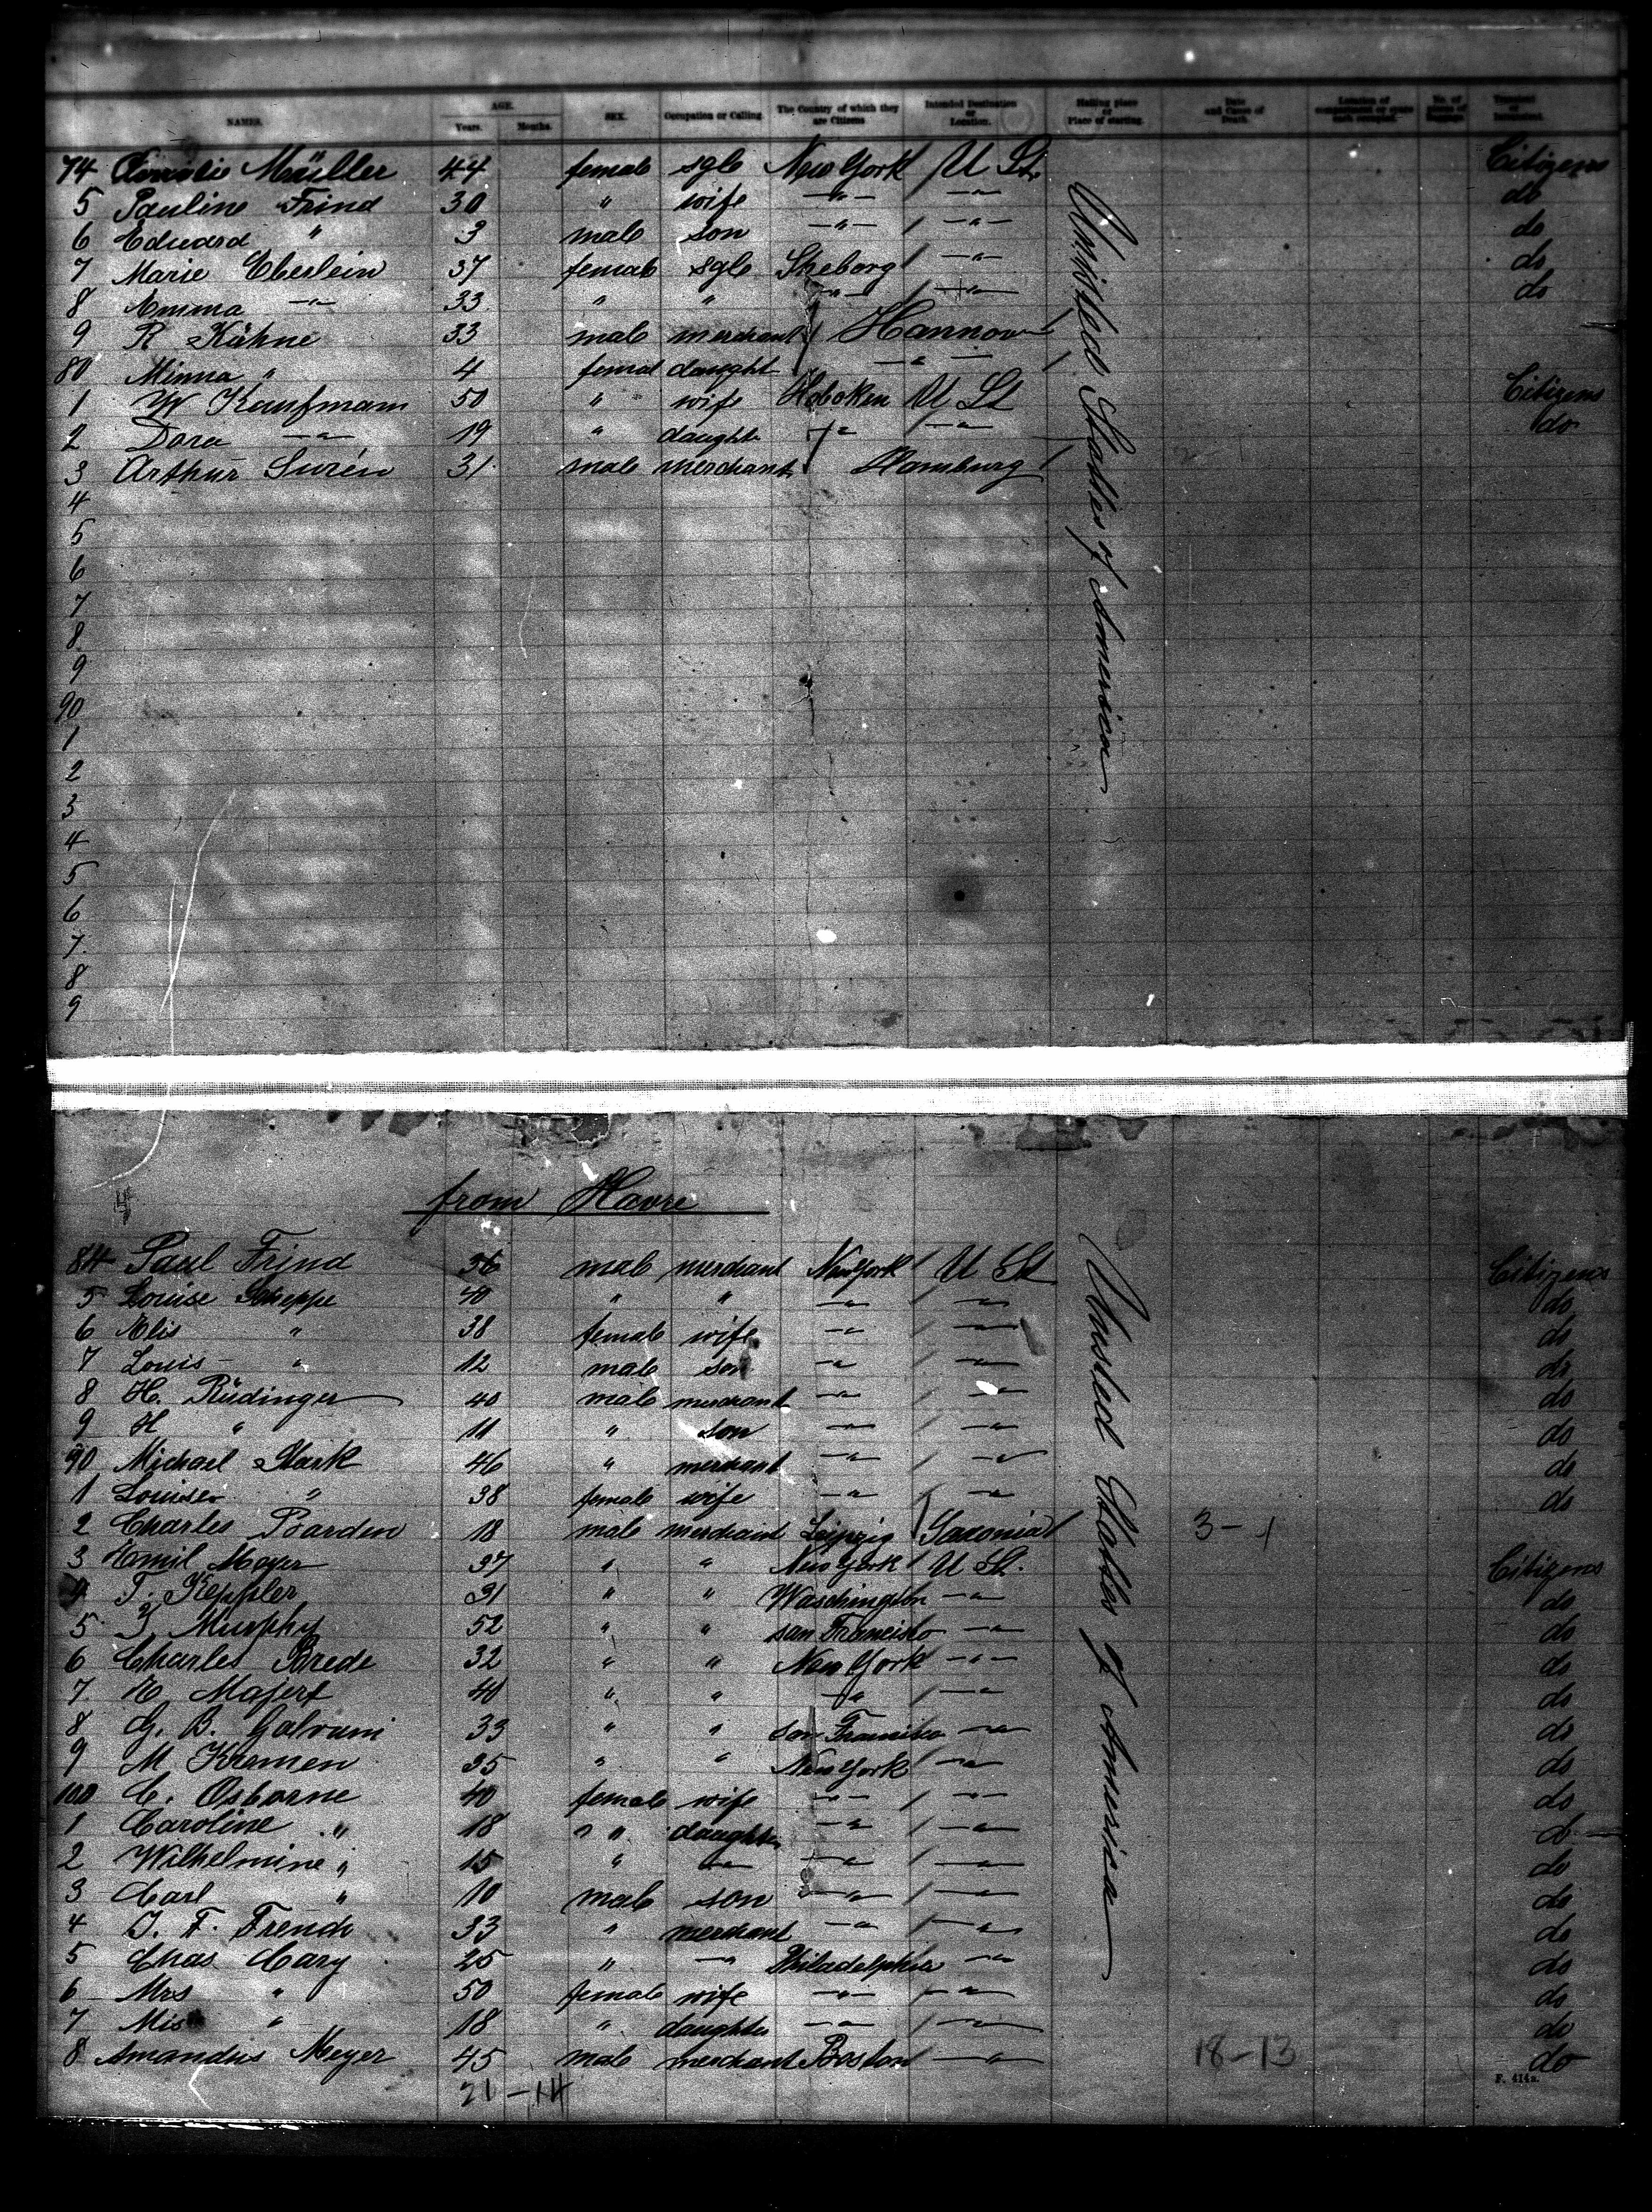 NAMES. AGE. Years. Months. SEX. Occupation or Calling. The Country of which they are Citizens Intended Destination or Location. Halting place or Place of starting. Date and Cause of Death. Location of compartment or space each occupied. No. of pieces of Baggage. Transient or Intransient.
74 Müller 44 female sgle New York / U St. Citizens
5 Pauline Frind 30 " wife -"- / -"- do
6 Eduard " 3 male son -"- / -"- do
7 Marie Eberlein 37 female sgle / -"- do
8 Emma -"- 33 " " -"- / -"- do
9 R Kühne 33 male merchant / Hannover /
80 Minna " 4 femal daught -"- /
1 W Kaufmann 50 " wife Hoboken U St Citizens
2 Dora -"- 19 " daughte -"- / -"- do
3 Arthur Surén 31 male merchant / Hamburg /
4
5
6
7
8
9
90
1
2
3
4
5
6
7
8
9
United States of America
from Havre
84 Paul Frind 36 male merchant New York / U St Citizens
5 Louise 40 " " -"- / -"- do
6 Elis " 38 female wife -"- / -"- do
7 Louis " 12 male son -"- / -"- do
8 H. Rüdinger 40 male merchant -"- / -"- do
9 H " 11 " son -"- / -"- do
90 Michael Stark 46 " merchant -"- / -"- do
1 Louise " 38 female wife -"- / -"- do
2 Charles Barden 18 male merchant Leipzig / Saxonia / 3-1
3 Emil Meyer 37 " " New York / U St. Citizens
4 T. Keppler 31 " " Waschington -"- do
5 Murphy 52 " " san Francisko -"- do
6 Charles Brede 32 " " New York -"- do
7 E Majert 40 " " -"- / -"- do
8 G. B. Galvani 33 " " san Francisko -"- do
9 M Kremen 35 " " New York / -"- do
100 C. Osborne 40 female wife -"- / -"- do
1 Caroline " 18 " " daughter -"- / -"- do
2 Wilhelmine " 15 " -"- -"- / -"- do
3 Carl " 10 male son -"- / -"- do
4 J. F. French 33 " merchant -"- / -"- do
5 Chas Cary 25 " -"- Philadelphia -"- do
6 Mrs " 50 female wife -"- / -"- do
7 Mis " 18 " daughter -"- / -"- do
8 Amandus Meyer 45 male merchant Boston / -"- 18-13 do
21-14
F. 414a.
United States of America